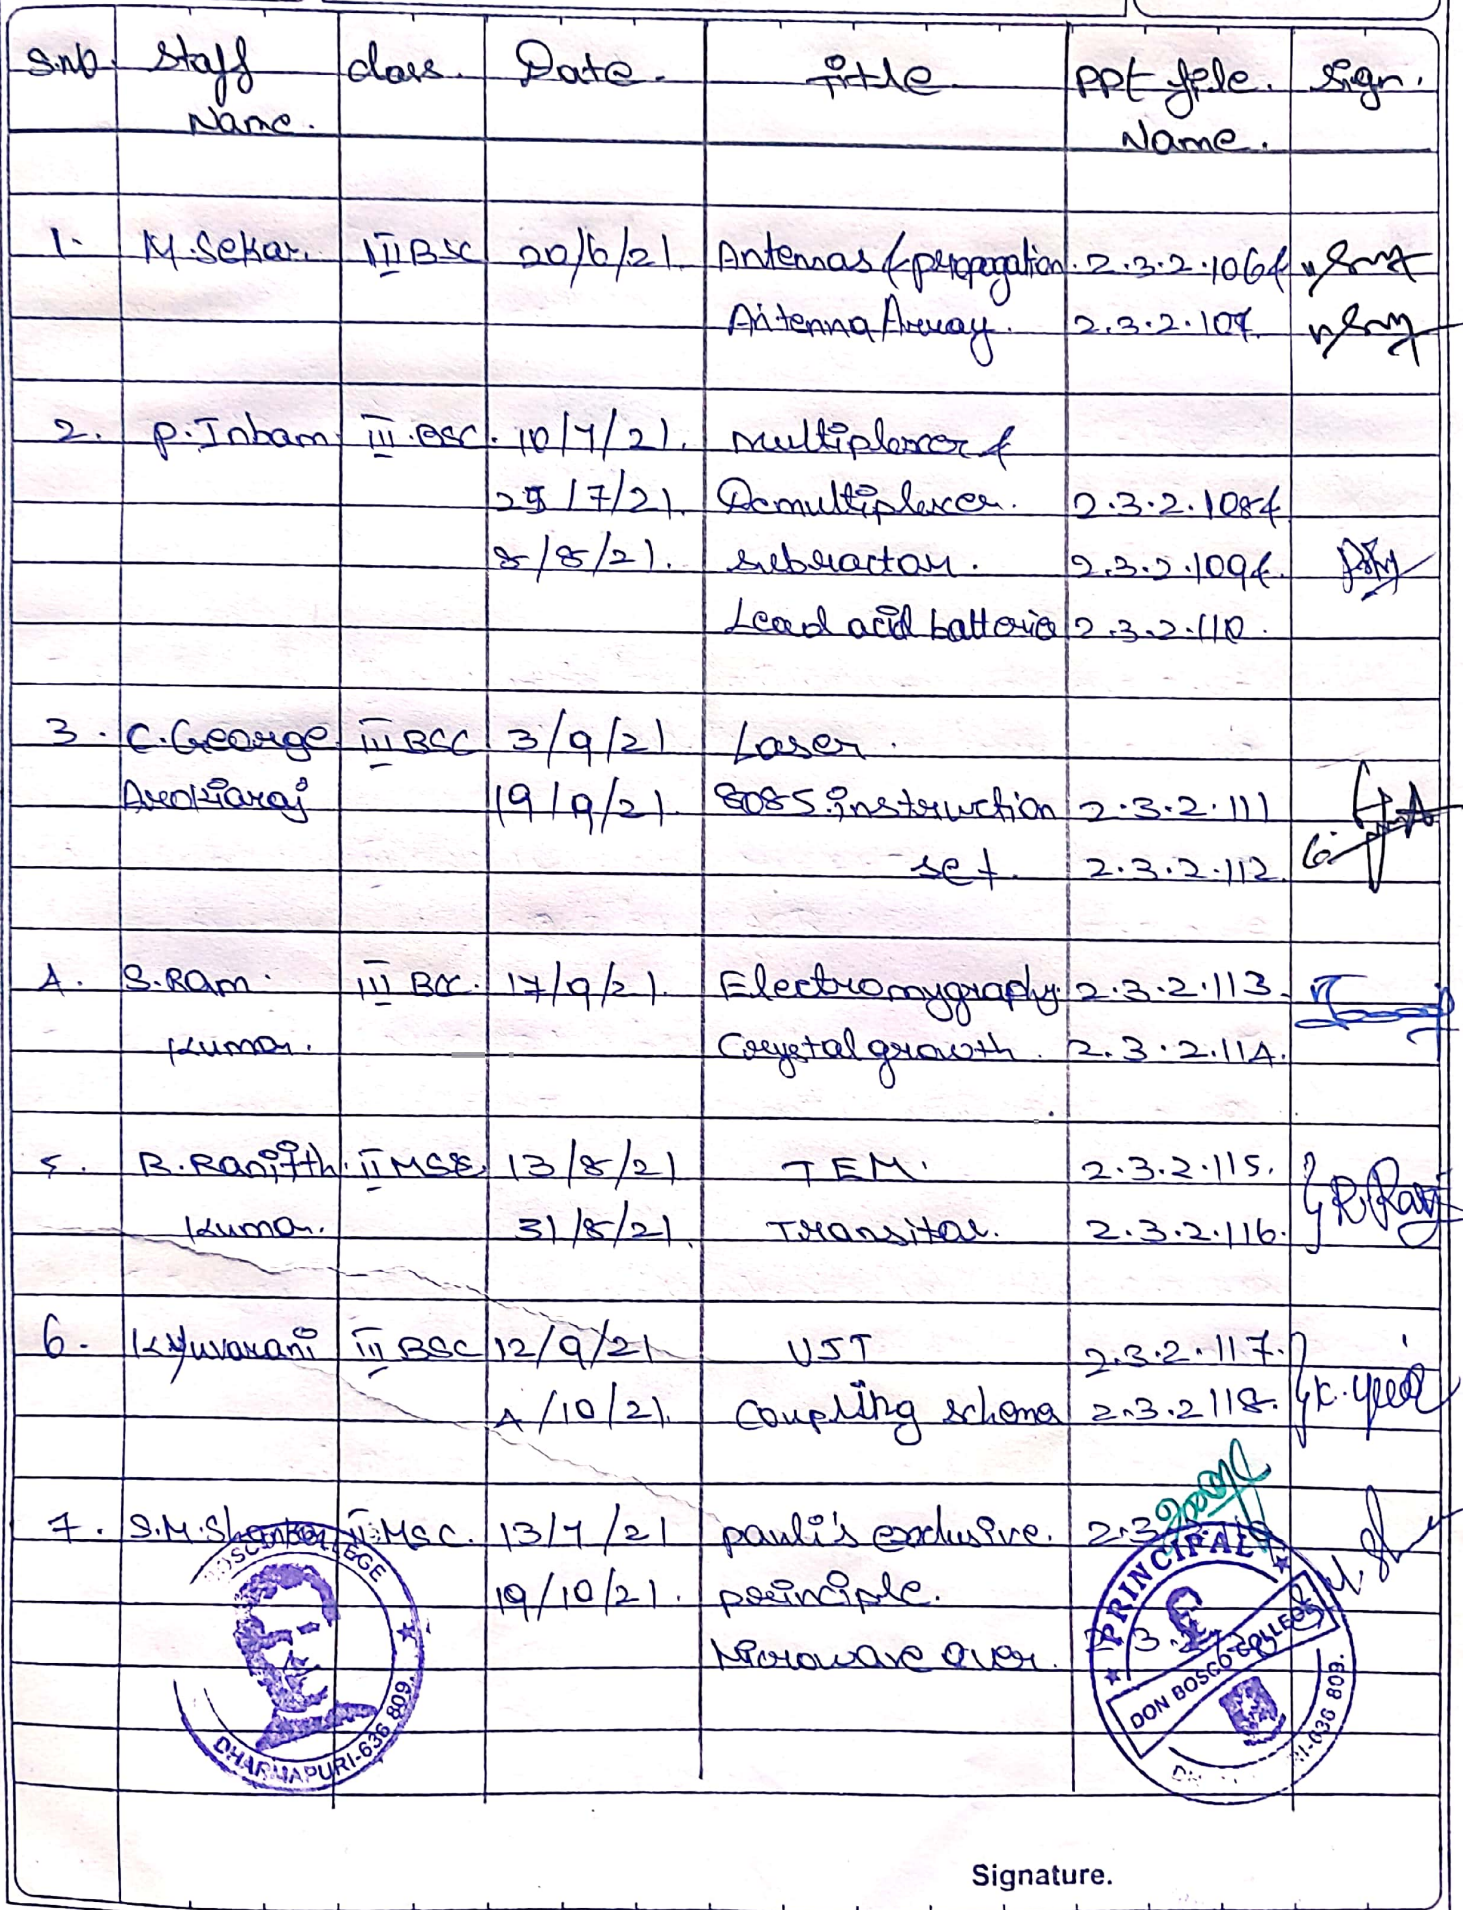 S.no. Staff class. Date. Title PPt file. Sign.
Name. Name.
1. M.Sekar. III BSC 20/6/21. Antennas & propogation. 2.3.2.106 &
Antenna Array. 2.3.2.107.
2. P.Inbam III.BSC. 10/7/21. Multiplexer &
25/7/21. Demultiplexer. 2.3.2.108 &
8/8/21. subractor. 2.3.2.109 &
Lead acid batterie 2.3.2.110.
3. C.George III BSC 3/9/21 Laser.
Arokiaraj 19/9/21. 8085 instruction 2.3.2.111
set. 2.3.2.112.
4. S.Ram. III BSC. 17/9/21. Electromygraphy. 2.3.2.113.
Kumar. Crystal growth. 2.3.2.114.
5. R.Ranjith II MSC 13/8/21 TEM. 2.3.2.115. R.Ranj
Kumar. 31/8/21. Transitor. 2.3.2.116.
6. K.Yuvarani III BSC 12/9/21 UJT 2.3.2.117.
4/10/21. Coupling schems 2.3.2 118.
7. S.M.Shankar II.MSC. 13/7/21 pauli's exclusive. 2.3
19/10/21. principle.
Microwave oven.
BOSCO COLLEGE
DHARMAPURI-636 809.
PRINCIPAL
DON BOSCO COLLEGE
636 809.
Signature.